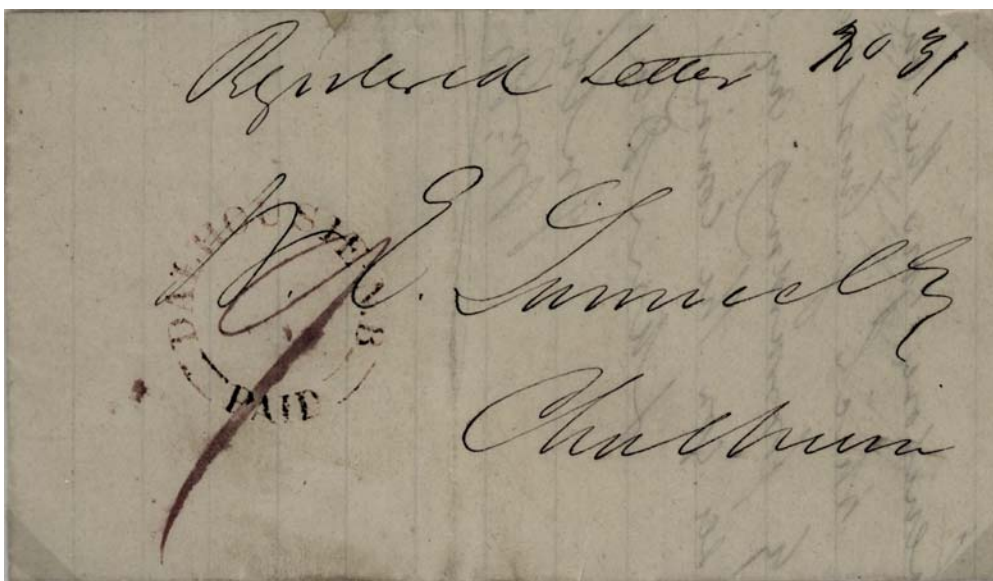 Registered Letter No 31
DALHOUSIE N.B
PAID
E. Samuel Esq
Chatham